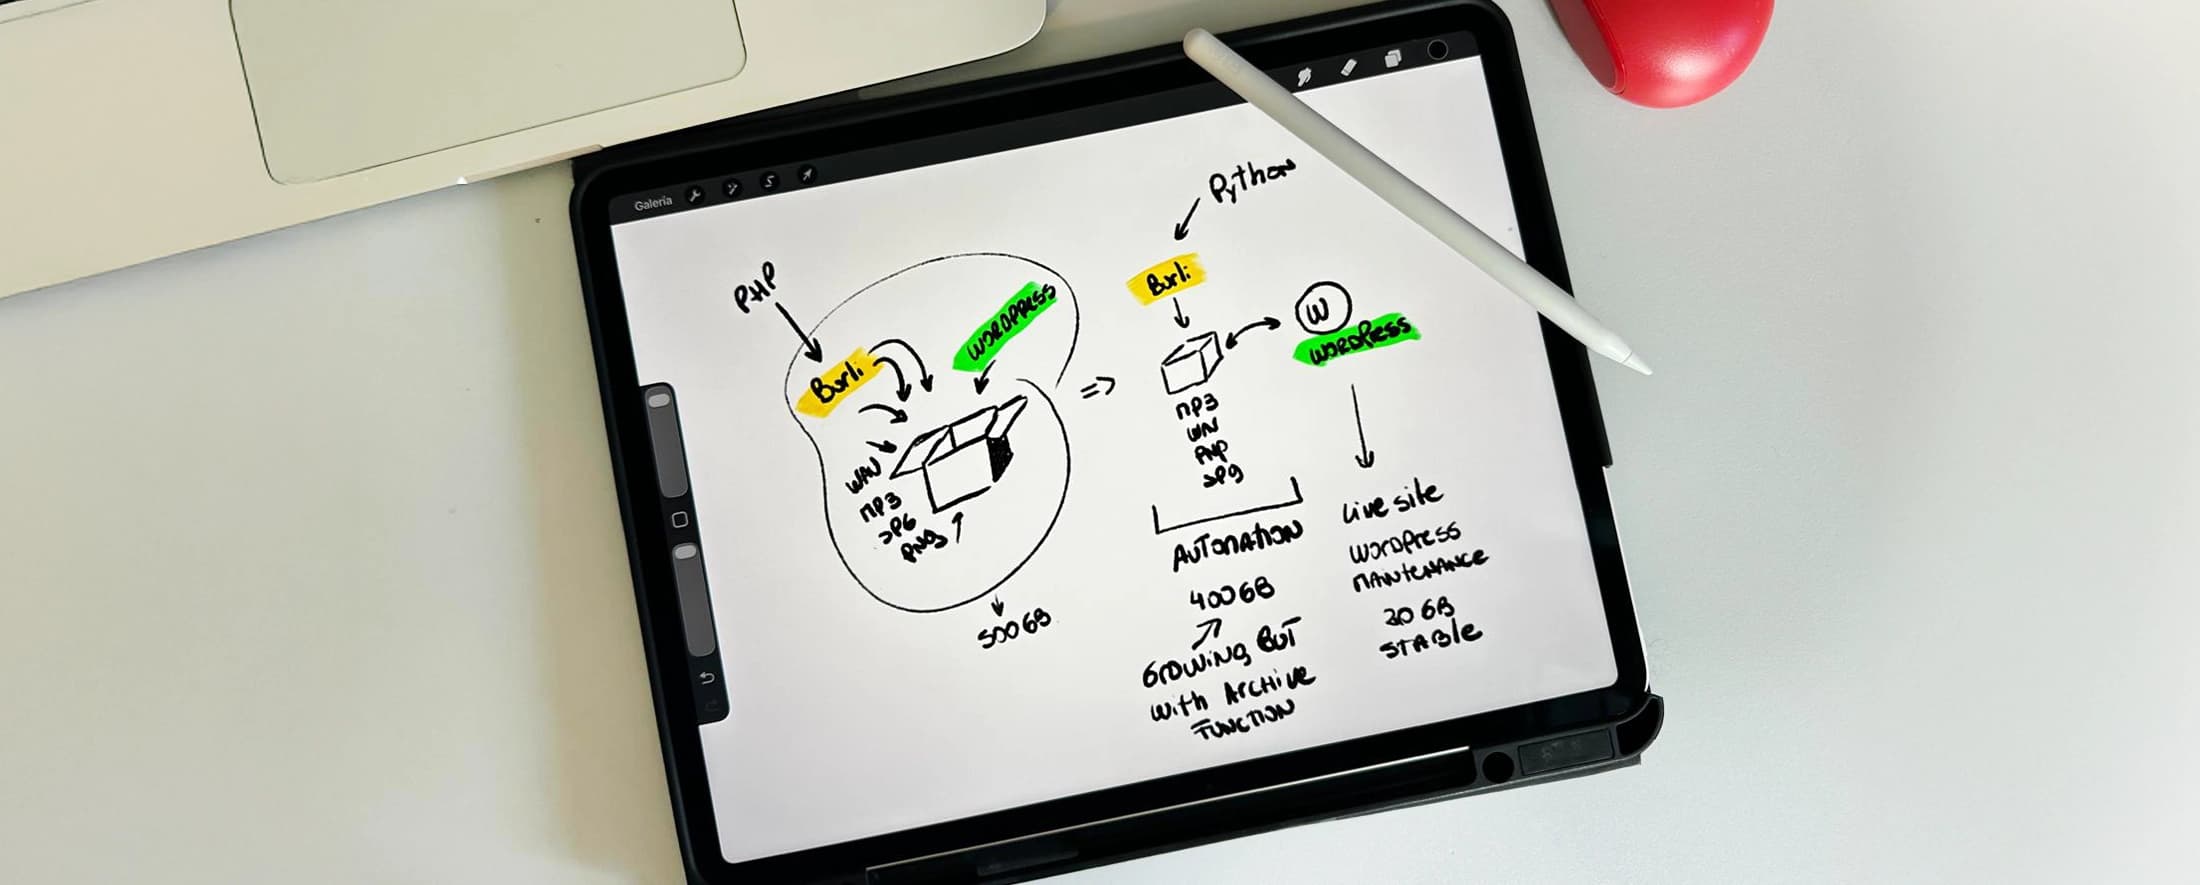 Galería
PHP
Burli
WORDPRESS
WAV
MP3
JPG
PNG
500GB
=>
Python
Burli
W
WORDPRESS
MP3
WAV
PNP
JPG
AUTOMATION
400GB
GROWING BUT
WITH ARCHIVE
FUNCTION
Live site
WORDPRESS
MAINTENANCE
30GB
STABLE